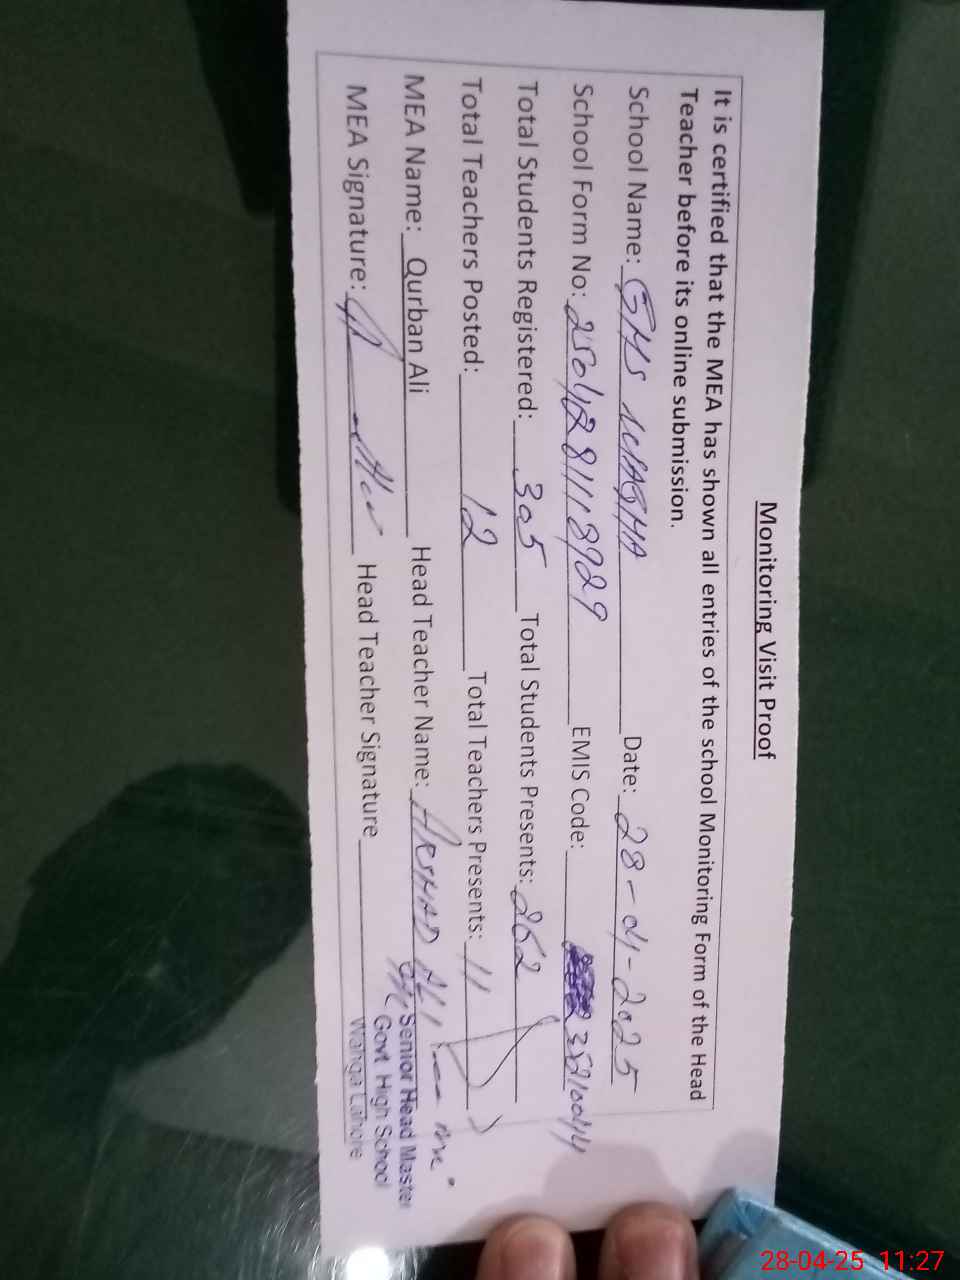 Monitoring Visit Proof
It is certified that the MEA has shown all entries of the school Monitoring Form of the Head
Teacher before its online submission.
School Name: GHS WAGHA Date: 28-04-2025
School Form No: 2504281118929 EMIS Code: 35210044
Total Students Registered: 305 Total Students Presents: 262
Total Teachers Posted: 12 Total Teachers Presents: 11
MEA Name: Qurban Ali Head Teacher Name: ARSHAD ALI
MEA Signature: Head Teacher Signature
Senior Head Master
Govt. High School
Wahga Lahore
28-04-25 11:27